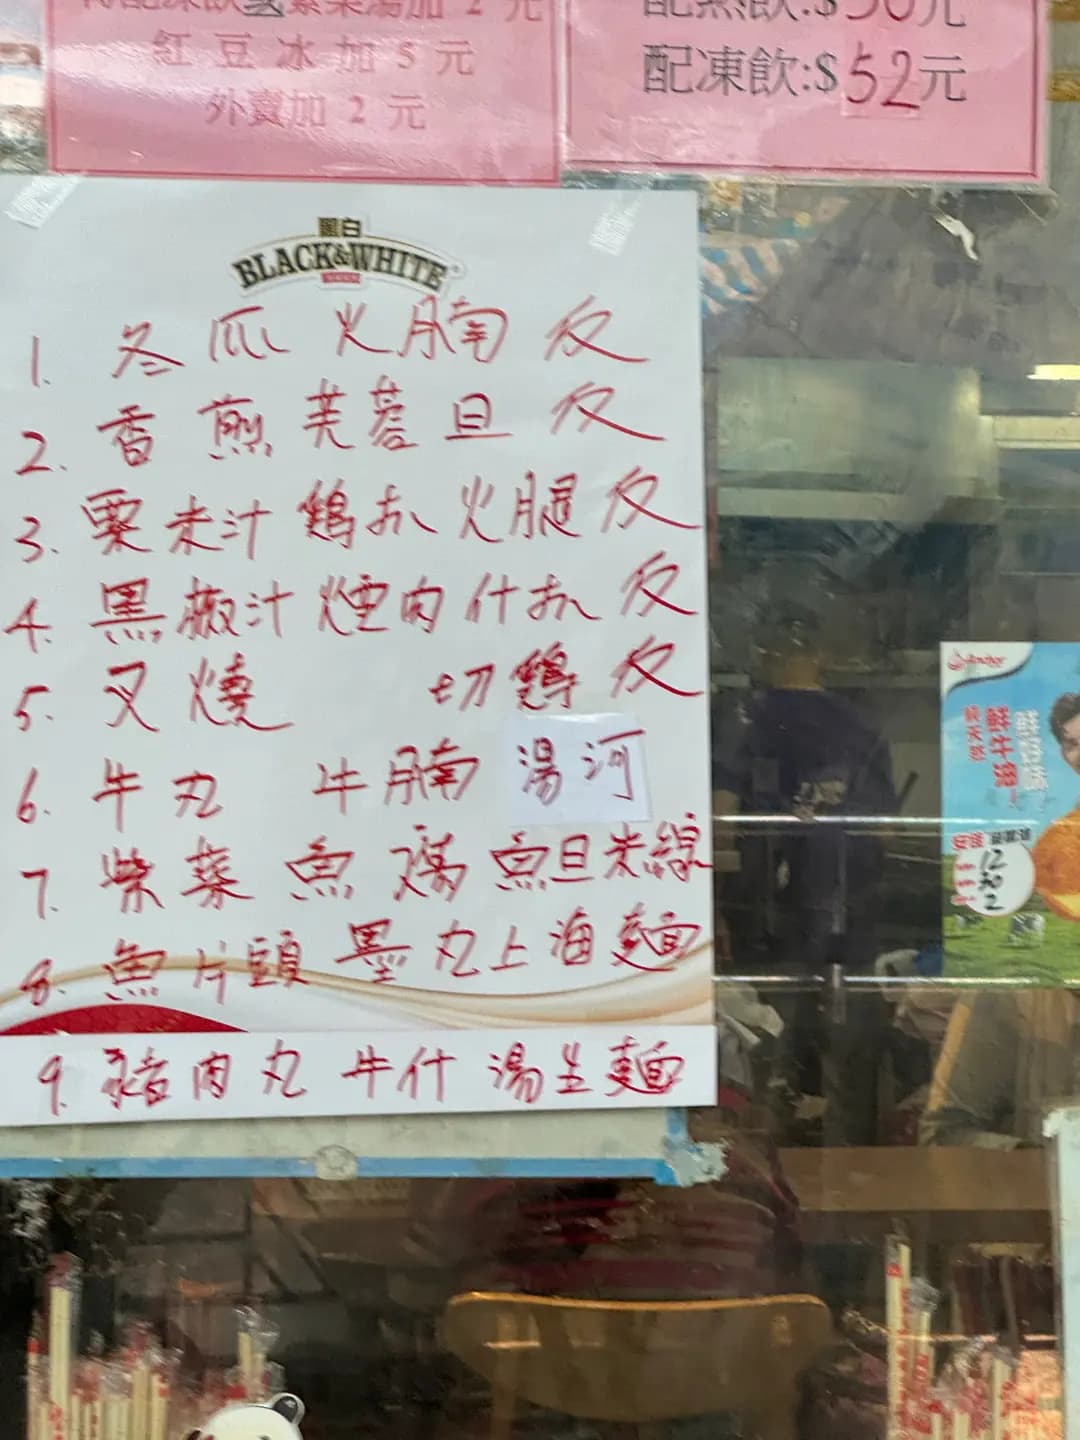 凍飲或紫菜湯加 2 元
紅豆冰加 5 元
外賣加 2 元
配熱飲:$50元
配凍飲:$52元
黑白
BLACK&WHITE
1. 冬瓜火腩反
2. 香煎芙蓉旦反
3. 粟米汁鷄扒火腿反
4. 黑椒汁煙肉什扒反
5. 叉燒 切鷄反
6. 牛丸 牛腩湯河
7. 柴菜魚湯魚旦米線
8. 魚片頭墨丸上海麵
9. 豬肉丸牛什湯生麵
Anchor
純天然
鮮牛油
12
30
2